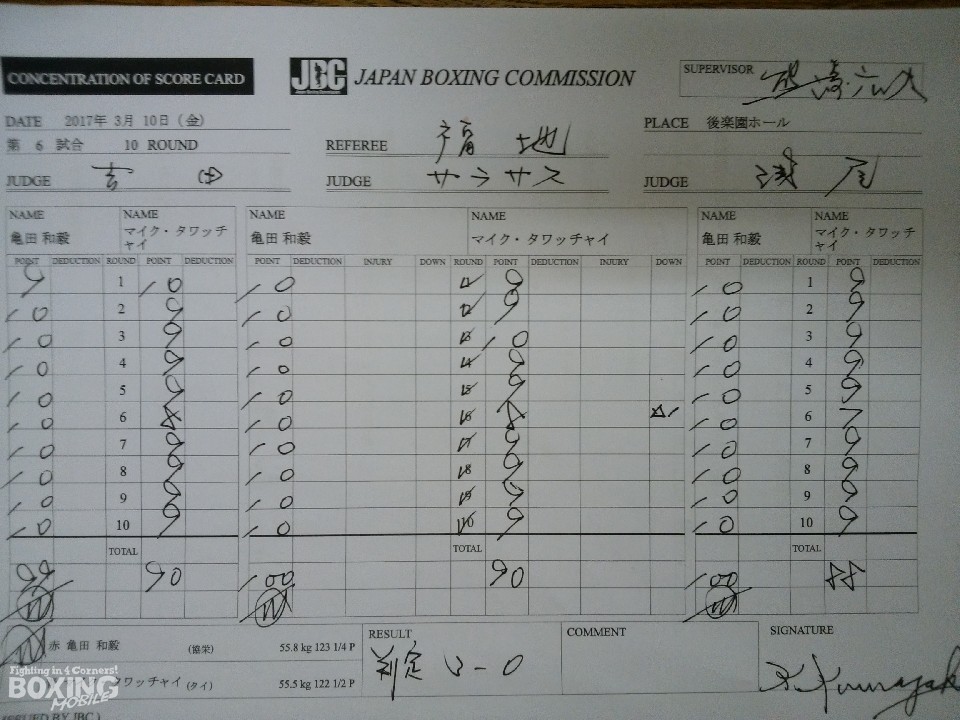 CONCENTRATION OF SCORE CARD
JBC JAPAN BOXING COMMISSION
SUPERVISOR
DATE 2017年 3月 10日 (金)
PLACE 後楽園ホール
第 6 試合 10 ROUND
REFEREE 福地
JUDGE 吉田
JUDGE サラサス
JUDGE 浅尾
NAME NAME NAME NAME NAME NAME
亀田 和毅 マイク・タワッチャイ 亀田 和毅 マイク・タワッチャイ 亀田 和毅 マイク・タワッチャイ
POINT DEDUCTION ROUND POINT DEDUCTION POINT DEDUCTION INJURY DOWN ROUND POINT DEDUCTION INJURY DOWN POINT DEDUCTION ROUND POINT DEDUCTION
9 1 10 10 1 9 10 1 9
10 2 9 10 2 9 10 2 9
10 3 9 10 3 10 10 3 9
10 4 9 10 4 9 10 4 9
10 5 9 10 5 9 10 5 9
10 6 8 10 6 8 10 6 7
10 7 9 10 7 9 10 7 9
10 8 9 10 8 9 10 8 9
10 9 9 10 9 9 10 9 9
10 10 9 10 10 9 10 10 9
TOTAL TOTAL TOTAL
99 90 100 90 100 88
W W W
W 赤 亀田 和毅 (協栄) 55.8 kg 123 1/4 P
タワッチャイ (タイ) 55.5 kg 122 1/2 P
RESULT
判定 3-0
COMMENT
SIGNATURE
Fighting in 4 Corners!
BOXING
MOBILE
(ISSUED BY JBC)